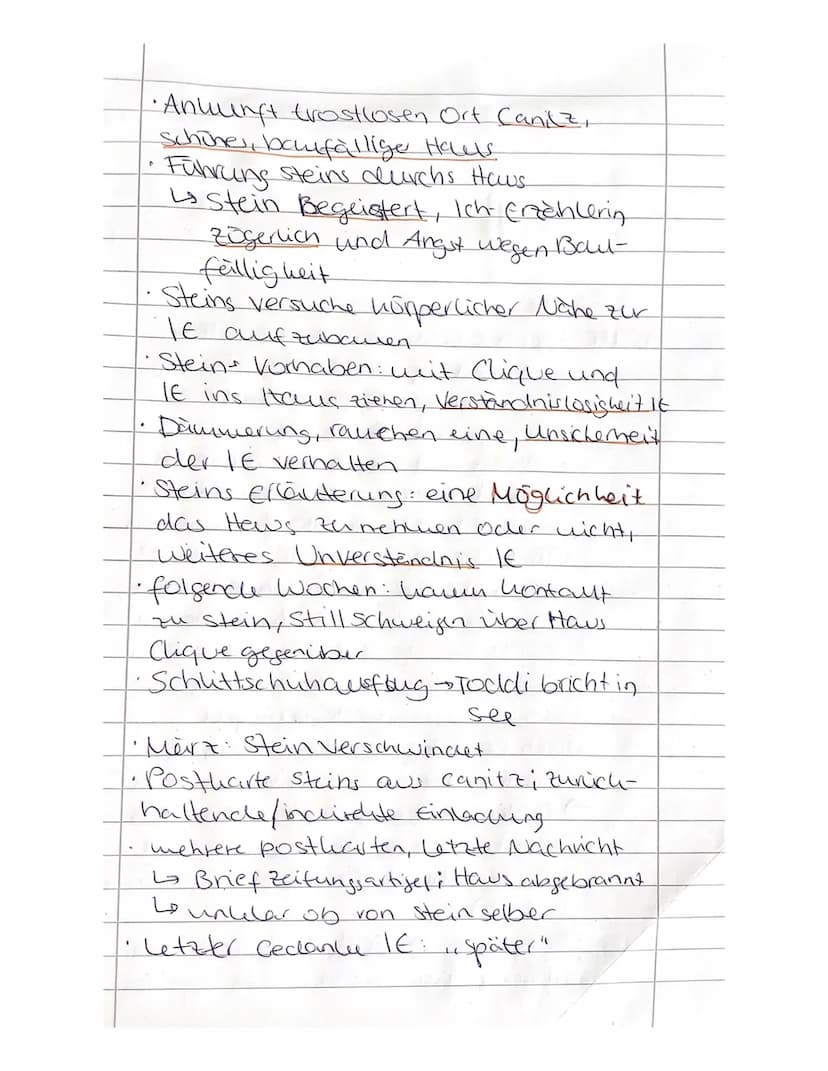 · Ankunft trostlosen Ort Canitz,
schönes, baufällige Haus
· Führung Steins durchs Haus
↳ Stein Begeistert, Ich-Erzählerin
zögerlich und Angst wegen Bau-
fälligkeit
· Steins versuche körperlicher Nähe zur
IE aufzubauen
· Steins Vorhaben: mit Clique und
IE ins Haus ziehen, Verständnislosigkeit IE
· Dämmerung, rauchen eine, Unsicherheit
der IE verhalten
· Steins Erläuterung: eine Möglichkeit
das Haus zu nehmen oder nicht,
weiteres Unverständnis IE
· folgende Wochen: kaum kontakt
zu Stein, Stillschweigen über Haus
Clique gegenüber
· Schlittschuhausflug → Toddi bricht in
See
· März: Stein verschwindet
· Postkarte Steins aus Canitz; zurück-
haltende/indirekte Einladung
· mehrere postkarten, letzte Nachricht
↳ Brief Zeitungsartikel: Haus abgebrannt
↳ unklar ob von Stein selber
· letzter Gedanke IE: „später“